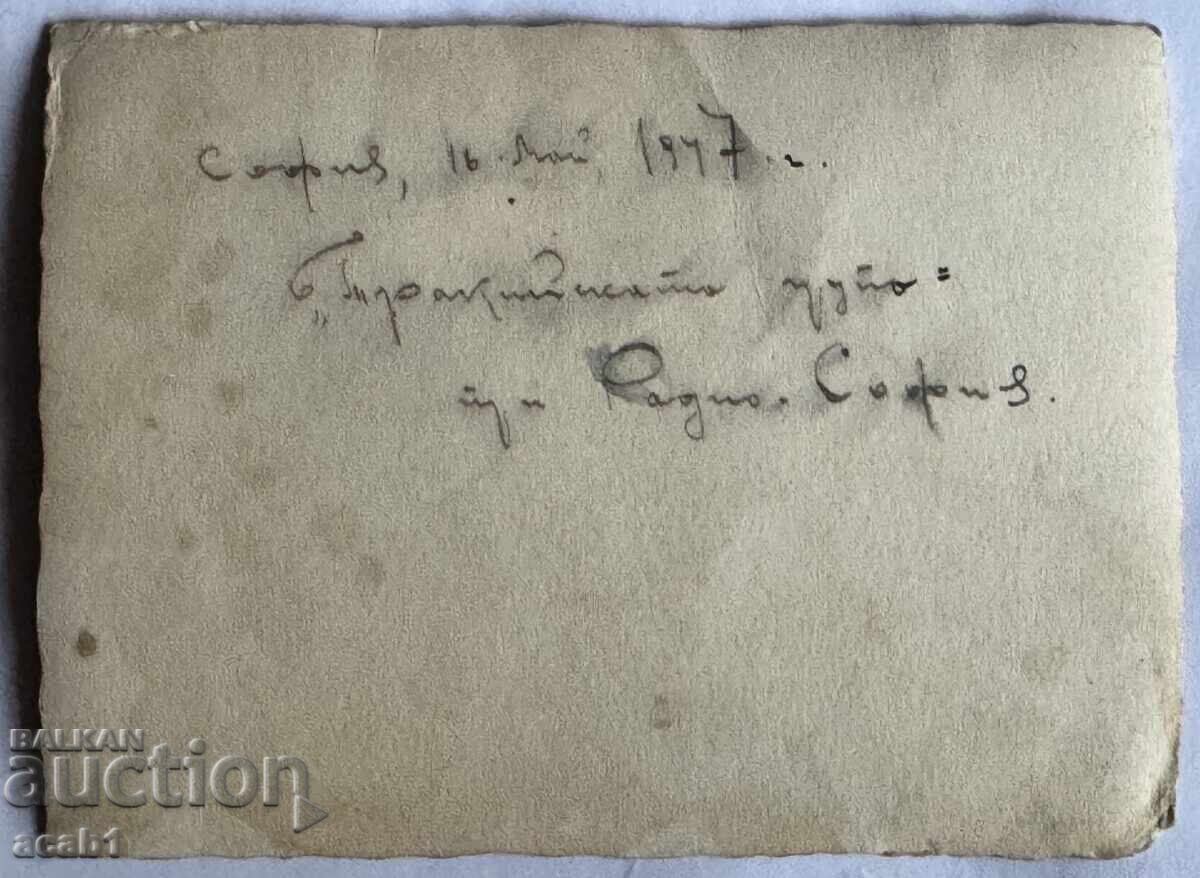 София, 16 май 1947 г.
„Тракийската група"
при Радио-София.
BALKAN
auction
acab1